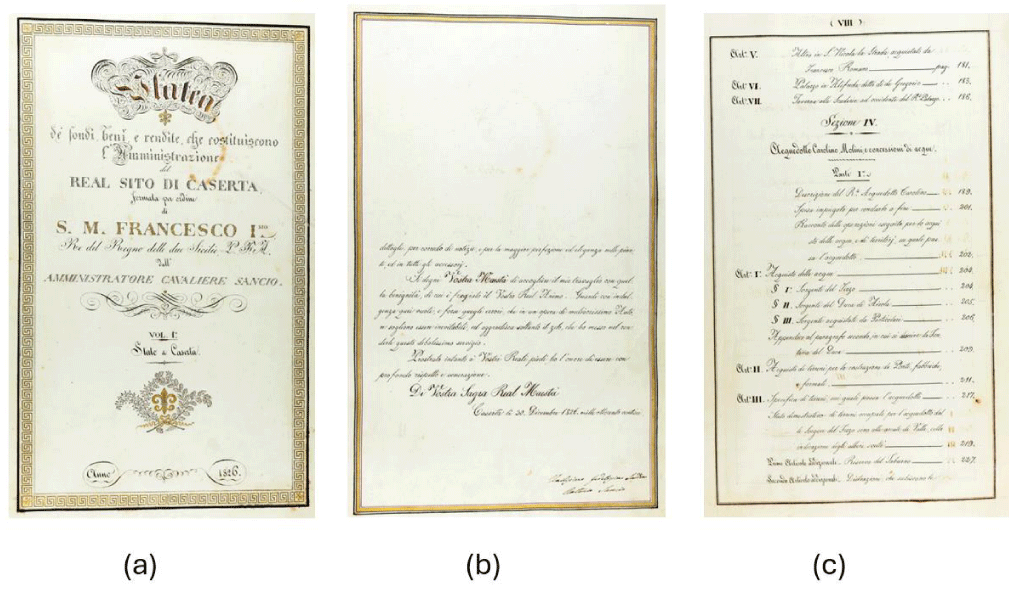 Platea
de' fondi, beni, e rendite, che costituiscono
l'Amministrazione
del
REAL SITO DI CASERTA,
formata per ordine
di
S. M. FRANCESCO I.mo
Re del Regno delle due Sicilie
dall'
AMMINISTRATORE CAVALIERE SANCIO.
VOL. I.
Stato di Caserta
Anno 1826.
(a)
dettaglio, per corredo di notizie, e per la maggior perfezione ed eleganza nelle pian-
te, ed in tutti gli accessorj.
Si degni Vostra Maestà di accogliere il mio travaglio con quel-
la benignità, di cui è fregiato il Vostro Real Animo. Guardi con indul-
genza ogni neo, e forse quegli errori, che in un'opera di
vogliono essere inevitabili, ed aggradisca soltanto il zelo, che ho messo nel ren-
derle questo debolissimo servigio.
Prostrato intanto a' Vostri Reali piedi ho l'onore di essere con
profondo rispetto e venerazione.
Di Vostra Sagra Real Maestà
Caserta li 30. Dicembre 1826.
(b)
(VIII)
Art.° V. Altra in S. Nicola la Strada acquistata da
Francesco Romano pag. 181.
Art.° VI. Palazzo in Alifreda detto di de Gregorio 183.
Art.° VII. Taverna alle ad occidente del R.l Palazzo 186.
Sezione IV.
Acquedotto Carolino, Molini, e concessioni di acque.
Parte I.a
Descrizione del R.le Acquedotto Carolino 189.
Spesa impiegata per condurlo a fine 201.
Racconto delle operazioni eseguite per le acqui-
sto delle acque, e de' territorj, su quali pas-
sa l'acquedotto 202.
Art.° I.° Acquisto delle acque 204.
§ I.° Sorgenti del Fizzo 204.
§ II. Sorgente del Duca di Airola 205.
§ III. Sorgenti acquistate da Particolari 206.
Appendice al paragrafo secondo, in cui si
del Duca 209.
Art.° II. Acquisto di terreni per la costruzione di Ponti, fabbriche,
e formali 211.
Art.° III. Specifica di terreni, sui quali passa l'acquedotto 217.
Stato dimostrativo de' terreni occupati per l'acquedotto dal-
le sorgive del Fizzo sino alle monte di Valle, colla
indicazione degli alberi 219.
Primo Articolo Addizionale. Riserva del 227.
Secondo Articolo Addizionale. Distrazioni, che
(c)